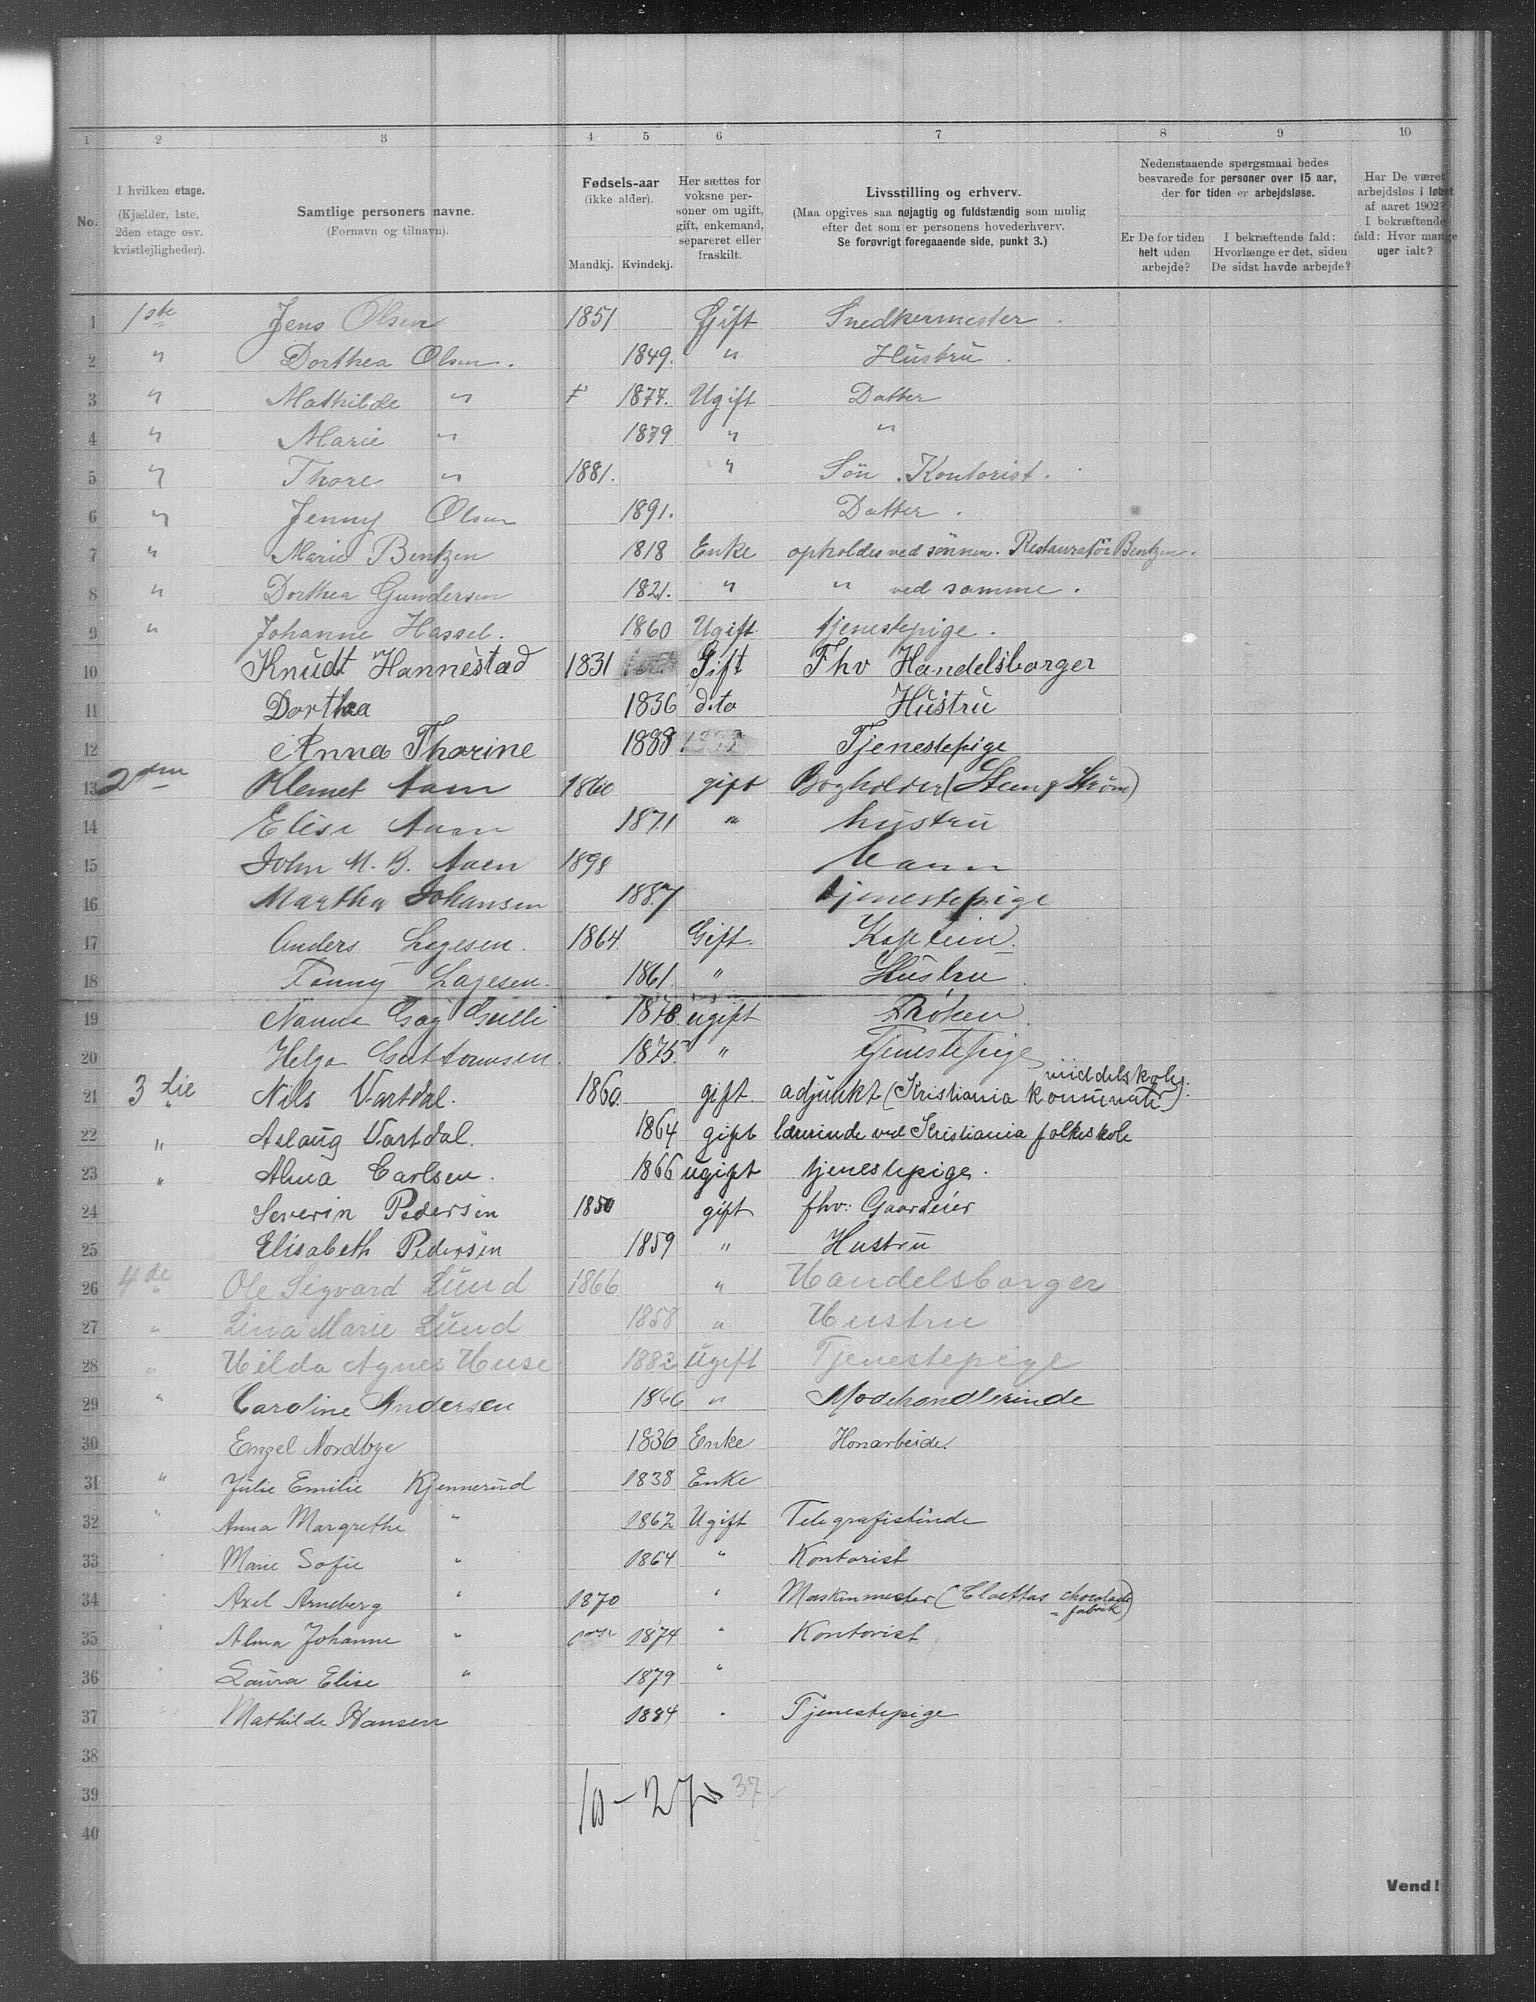 1 2 3 4 5 6 7 8 9 10
No.
I hvilken etage.
(Kjælder, 1ste,
2den etage osv.
kvistlejligheder).
Samtlige personers navne.
(Fornavn og tilnavn).
Fødsels-aar
(ikke alder).
Mandkj. Kvindekj.
Her sættes for
voksne per-
soner om ugift,
gift, enkemand,
separeret eller
fraskilt.
Livsstilling og erhverv.
(Maa opgives saa nøjagtig og fuldstændig som mulig
efter det som er personens hovederhverv.
Se forøvrigt foregaaende side, punkt 3.)
Nedenstaaende spørgsmaal bedes
besvarede for personer over 15 aar,
der for tiden er arbejdsløse.
Er De for tiden
helt uden
arbejde?
I bekræftende fald:
Hvorlænge er det, siden
De sidst havde arbejde?
Har De været
arbejdsløs i løbet
af aaret 1902?
I bekræftende
fald: Hvor mange
uger ialt?
1 1ste Jens Olsen 1851 Gift Snedkermester
2 " Dorthea Olsen. 1849. " Hustru.
3 " Mathilde " 1877. Ugift Datter
4 " Marie " 1879 " "
5 " Thore " 1881. " Søn. Kontorist.
6 " Jenny Olsen 1891. Datter.
7 " Marie Bentzen 1818 Enke opholdes ved sønnen. Restauratør Bentzen.
8 " Dorthea Gundersen 1821. " " ved samme.
9 " Johanne Hassel. 1860 Ugift. tjenestepige.
10 Knudt Hannestad 1831 Gift Fhv Handelsborger
11 Dorthea 1836 dito Hustru
12 Anna Thorine 1888 Tjenestepige
13 2den Klemet Aaen 1860 gift Bogholder (Steen & Strøm)
14 Elise Aaen 1871 " hustru
15 John M. B. Aaen 1898 barn
16 Martha Johansen 1887 tjenestepige
17 Anders Lagesen. 1864. Gift. Kaptein.
18 Fanny Lagesen. 1861. " Hustru.
19 Nanna Gulli 1878. ugift Frøken.
20 Helga Guttormsen. 1875. " Tjenestepige
21 3die Nils Vartdal. 1860. gift. adjunkt (Kristiania kommunale middelskole)
22 " Aslaug Vartdal. 1864 gift lærerinde ved Kristiania folkeskole
23 " Alma Carlsen. 1866 ugift tjenestepige.
24 Severin Pedersen 1850 gift fhv: Gaardeier
25 Elisabeth Pedersen 1859 " Hustru
26 4de Ole Sigvard Lund 1866 " Handelsborger
27 " Lina Marie Lund 1858 " Hustru
28 " Hilda Agnes Huse 1882 Ugift Tjenestepige
29 " Caroline Andersen 1866 " Modehandlerinde
30 Engel Nordbye 1836 Enke Haanarbeide.
31 " Julie Emilie Kjennerud 1838 Enke
32 " Anna Margrethe " 1862 Ugift Telegrafistinde
33 " Marie Sofie " 1864 " Kontorist
34 " Axel Arneberg " 1870 " Maskinmester (Cloettas chocolade-fabrik)
35 " Alma Johanne " 1874 " Kontorist
36 " Laura Elise " 1879 "
37 " Mathilde Hansen 1884 " Tjenestepige
38
39 10 - 27 37
40
Vend!